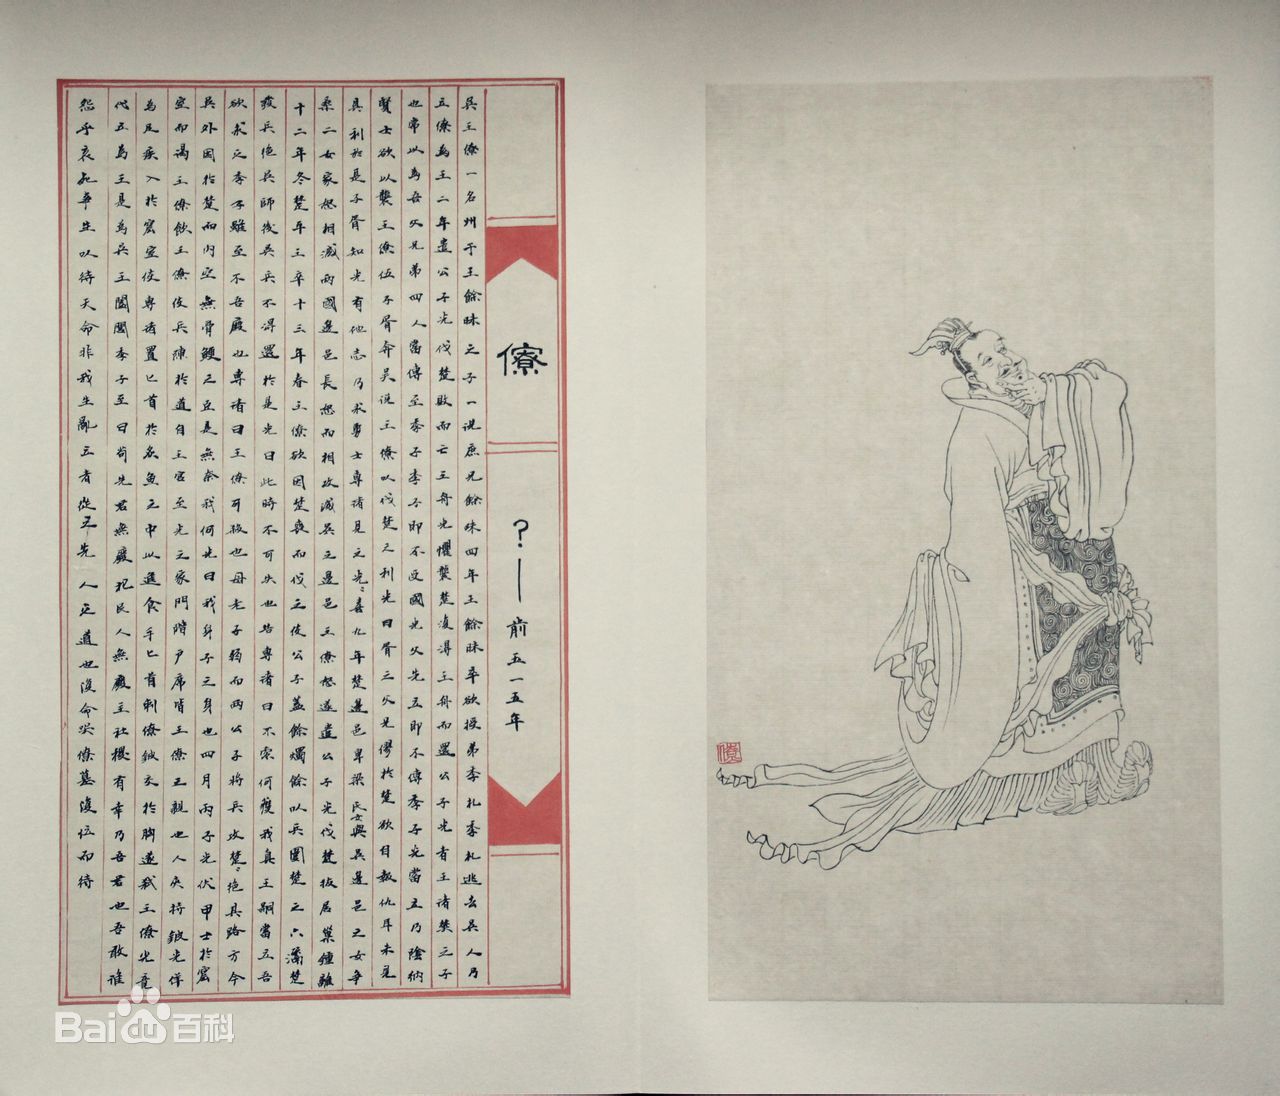 僚
?—前五一五年
吳王僚一名州于王餘昧之子一説庶兄餘昧四年王餘昧卒欲授弟季札季札逃去吳人乃
立僚為王二年遣公子光伐楚敗而亡王舟光懼襲楚復得王舟而還公子光者王諸樊之子
也常以為吾父兄弟四人當傳至季子季子即不受國光父先立即不傳季子光當立乃陰納
賢士欲以襲王僚伍子胥奔吳說王僚以伐楚之利光曰胥之父兄僇於楚欲自報仇耳未見
其利於是子胥知光有他志乃求勇士專諸見之光光喜九年楚邊邑卑梁氏女與吳邊邑之女爭
桑二女家怒相滅兩國邊邑長怒而相攻滅吳之邊邑王僚怒遂遣公子光伐楚拔居巢鍾離
十二年冬楚平王卒十三年春王僚欲因楚喪而伐之使公子蓋餘燭餘以兵圍楚之六灊楚
發兵絶吳師後吳兵不得還於是光曰此時不可失也告專諸曰不索何獲我真王嗣當立吾
欲求之季子雖至不吾廢也專諸曰王僚可殺也母老子弱而兩公子將兵攻楚楚絶其路方今
吳外困於楚而内空無骨鯁之臣是無奈我何光曰我身子之身也四月丙子光伏甲士於窟
室而謁王僚飲王僚使兵陳於道自王宮至光之家門階戶席皆王僚之親也人夾持鈹光佯
為足疾入於窟室使專諸置匕首於炙魚之中以進食手匕首刺僚鈹交於胸遂弒王僚光竟
代立為王是為吳王闔閭季子至曰苟先君無廢祀民人無廢主社稷有奉乃吾君也吾敢誰
怨乎哀死事生以待天命非我生亂立者從之先人之道也復命哭僚墓復位而待
僚
Bai百科